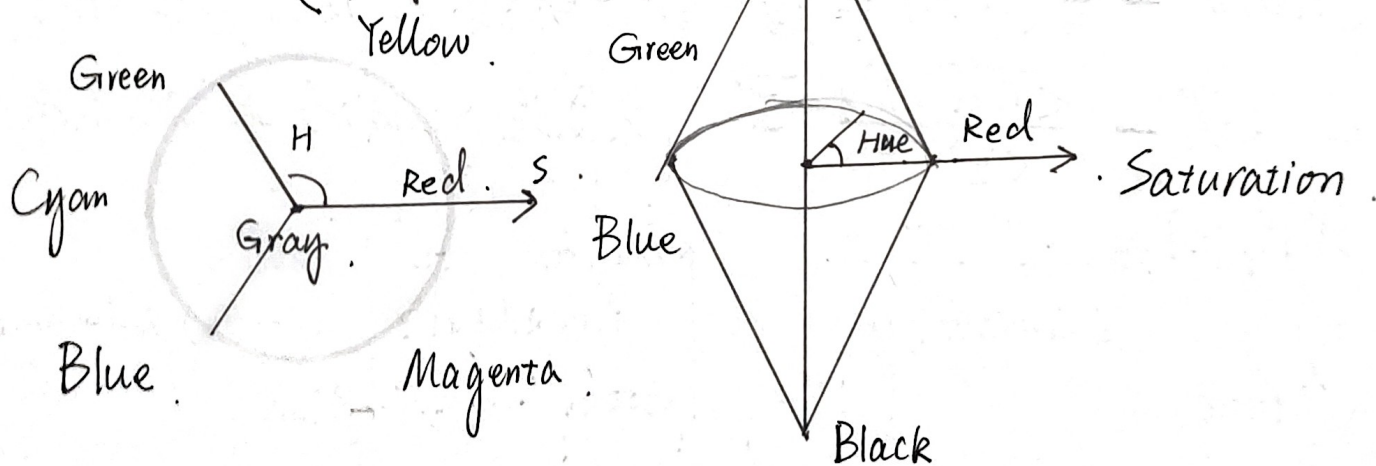 Yellow.
Green
H
Red.
S.
Cyan
Gray.
Blue.
Magenta.
Green
Hue
Red
. Saturation.
Blue
Black